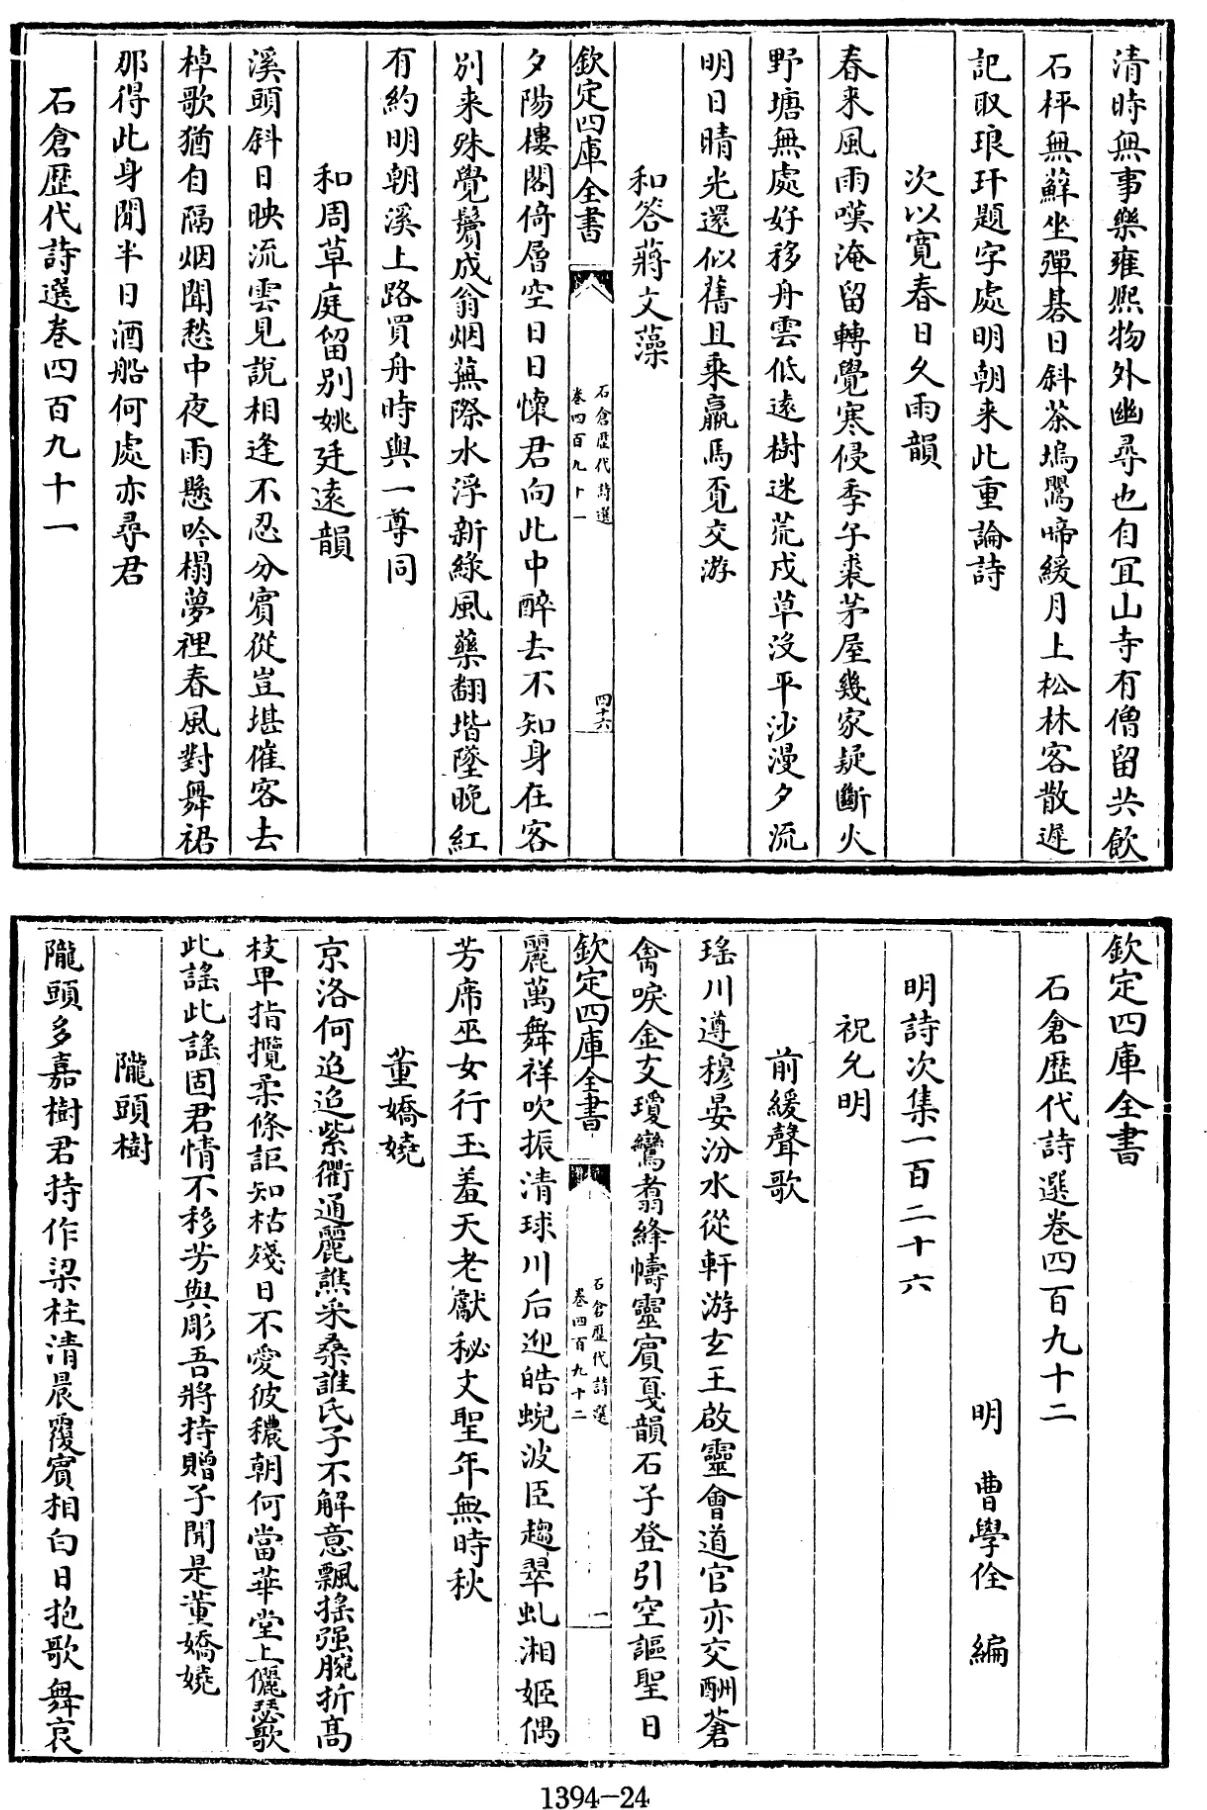 清時無事樂雍熈物外幽尋也自冝山寺有僧留共飲
石枰無蘚坐彈碁日斜茶塢鶯啼緩月上松林客散遲
記取琅玕題字處明朝来此重論詩
次以寛春日久雨韻
春来風雨嘆淹留轉覺寒侵季子裘茅屋幾家疑斷火
野塘無處好移舟雲低逺樹迷荒戍草沒平沙漫夕流
明日晴光還似舊且乗羸馬覓交游
和答蔣文藻
欽定四庫全書
石倉歴代詩選
卷四百九十一
四十六
夕陽樓閣倚層空日日懐君向此中醉去不知身在客
别来殊覺鬢成翁烟蕪際水浮新綠風藥翻堦墜晚紅
有約明朝溪上路買舟時與一尊同
和周草庭留别姚廷逺韻
溪頭斜日映流雲見說相逢不忍分賓從豈堪催客去
棹歌猶自隔烟聞愁中夜雨懸吟榻夢裡春風對舞裙
那得此身閒半日酒船何處亦尋君
石倉歴代詩選卷四百九十一
欽定四庫全書
石倉歴代詩選卷四百九十二
明 曹學佺 編
明詩次集一百二十六
祝允明
前緩聲歌
瑤川遵穆晏汾水從軒游玄王啟靈會道官亦交酬蒼
禽唳金支瓊鸞翥絳幬靈賓戛韻石子登引空謳聖日
欽定四庫全書
石倉歴代詩選
卷四百九十二
一
麗萬舞祥吹振清球川后迎皓蜺波臣趨翠虬湘姬偶
芳席巫女行玉羞天老獻秘文聖年無時秋
董嬌嬈
京洛何迢迢紫衢通麗譙采桑誰氏子不解意飄揺强腕折髙
枝早指攬柔條詎知枯殘日不愛彼穠朝何當華堂上儷瑟歌
此謡此謡固君情不移芳與彫吾將持贈子閒是董嬌嬈
隴頭樹
隴頭多嘉樹君持作梁柱清晨覆賓相白日抱歌舞哀
1394-24